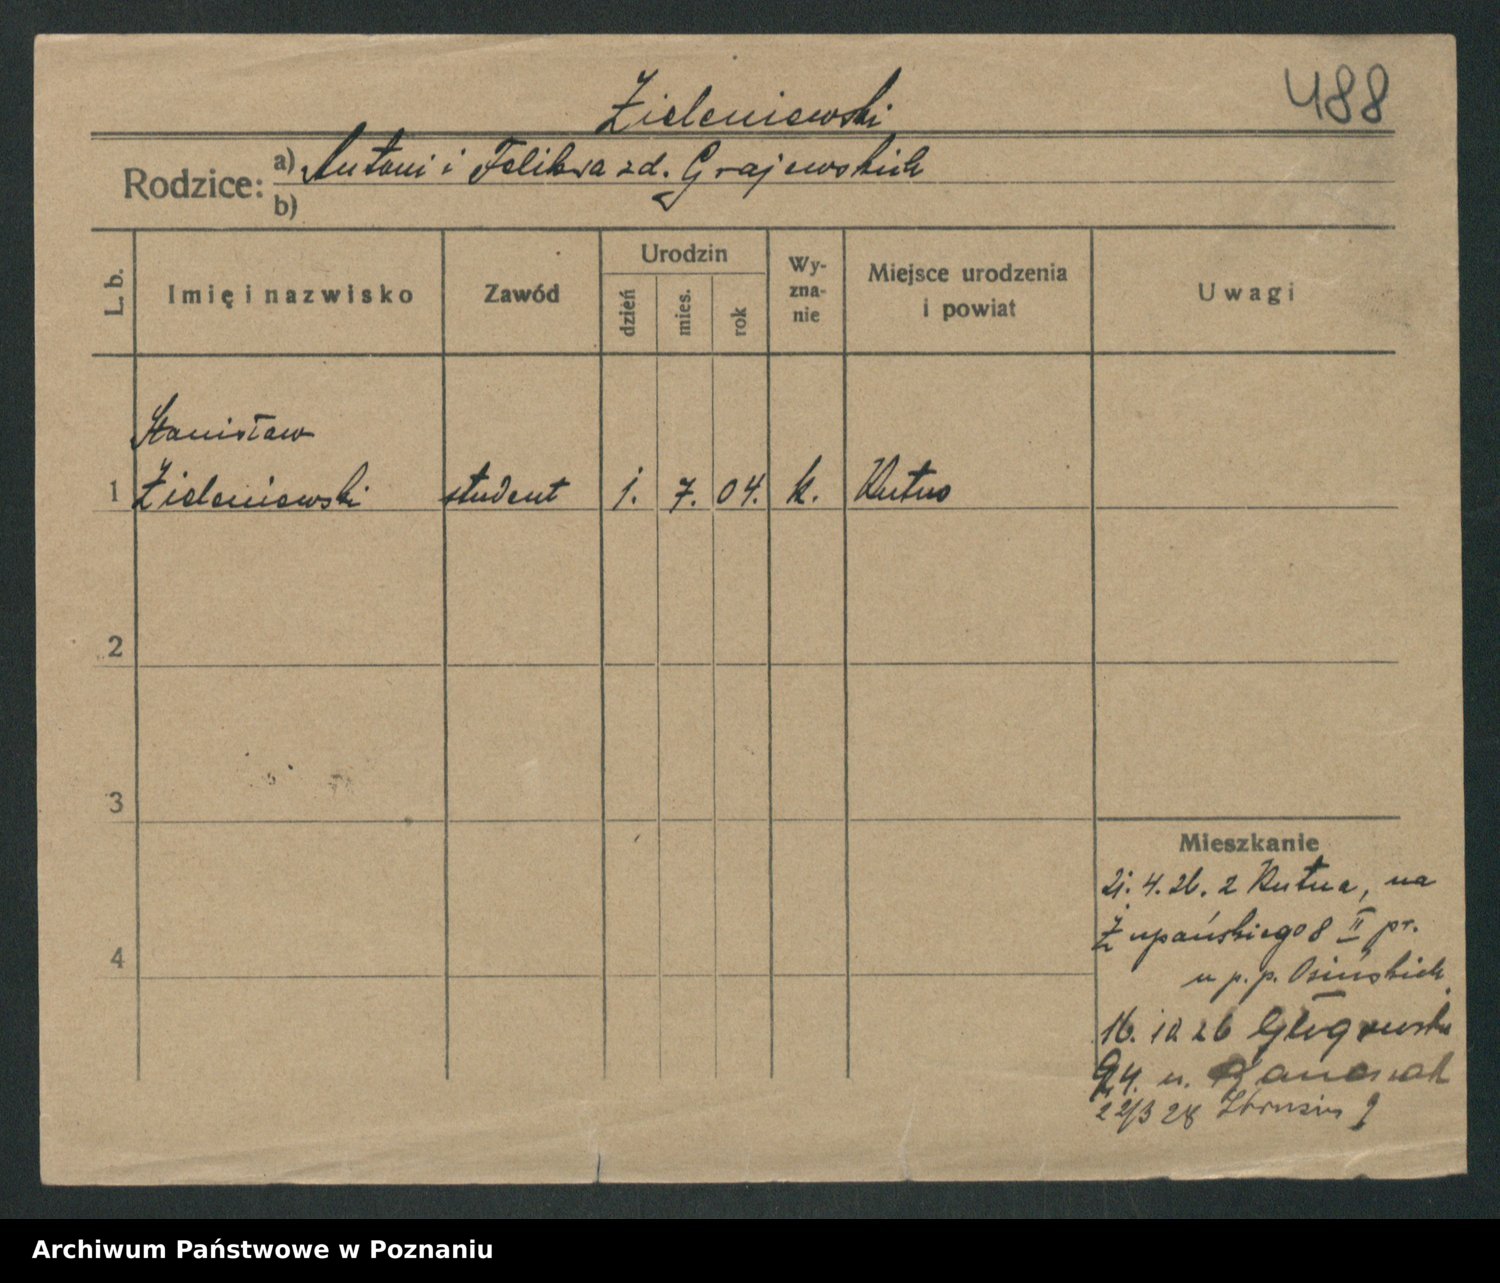 Zieleniewski
488
Rodzice: a) Antoni i Feliksa zd. Grajewskich
b)
L. b.
Imię i nazwisko
Zawód
Urodzin
dzień
mies.
rok
Wy-
zna-
nie
Miejsce urodzenia
i powiat
Uwagi
Stanisław
1 Zieleniewski student 1. 7. 04. k. Kutno
2
3
4
Mieszkanie
21. 4. 26. z Kutna, na
Żupańskiego 8 II pr.
u p.p. Osińskich
16. 10 26 Głogowska
94. u.
22/3 28
Archiwum Państwowe w Poznaniu